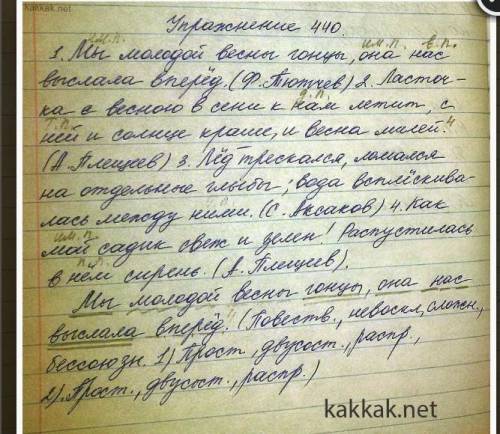 kakkak.net
Упражнение 440.
им.п. им.п. в.п.
1. Мы молодой весны гонцы, она нас
выслала вперёд. (Ф. Тютчев) 2. Ласточ-
д.п.
ка с весною в сени к нам летит, с
т.п. 4
ней и солнце краше, и весна милей.
(А. Плещеев) 3. Лёд трескался, ломался
на отдельные глыбы; вода всплёскива-
лась между ними. (С. Аксаков) 4. Как
им.п.
мой садик свеж и зелен! Распустилась
п.п.
в нём сирень. (А. Плещеев).
Мы молодой весны гонцы, она нас
выслала вперёд. 4 (Повеств., невоскл., сложн.,
бессоюзн. 1) Прост., двусост., распр.,
2) Прост., двусост., распр.)
kakkak.net